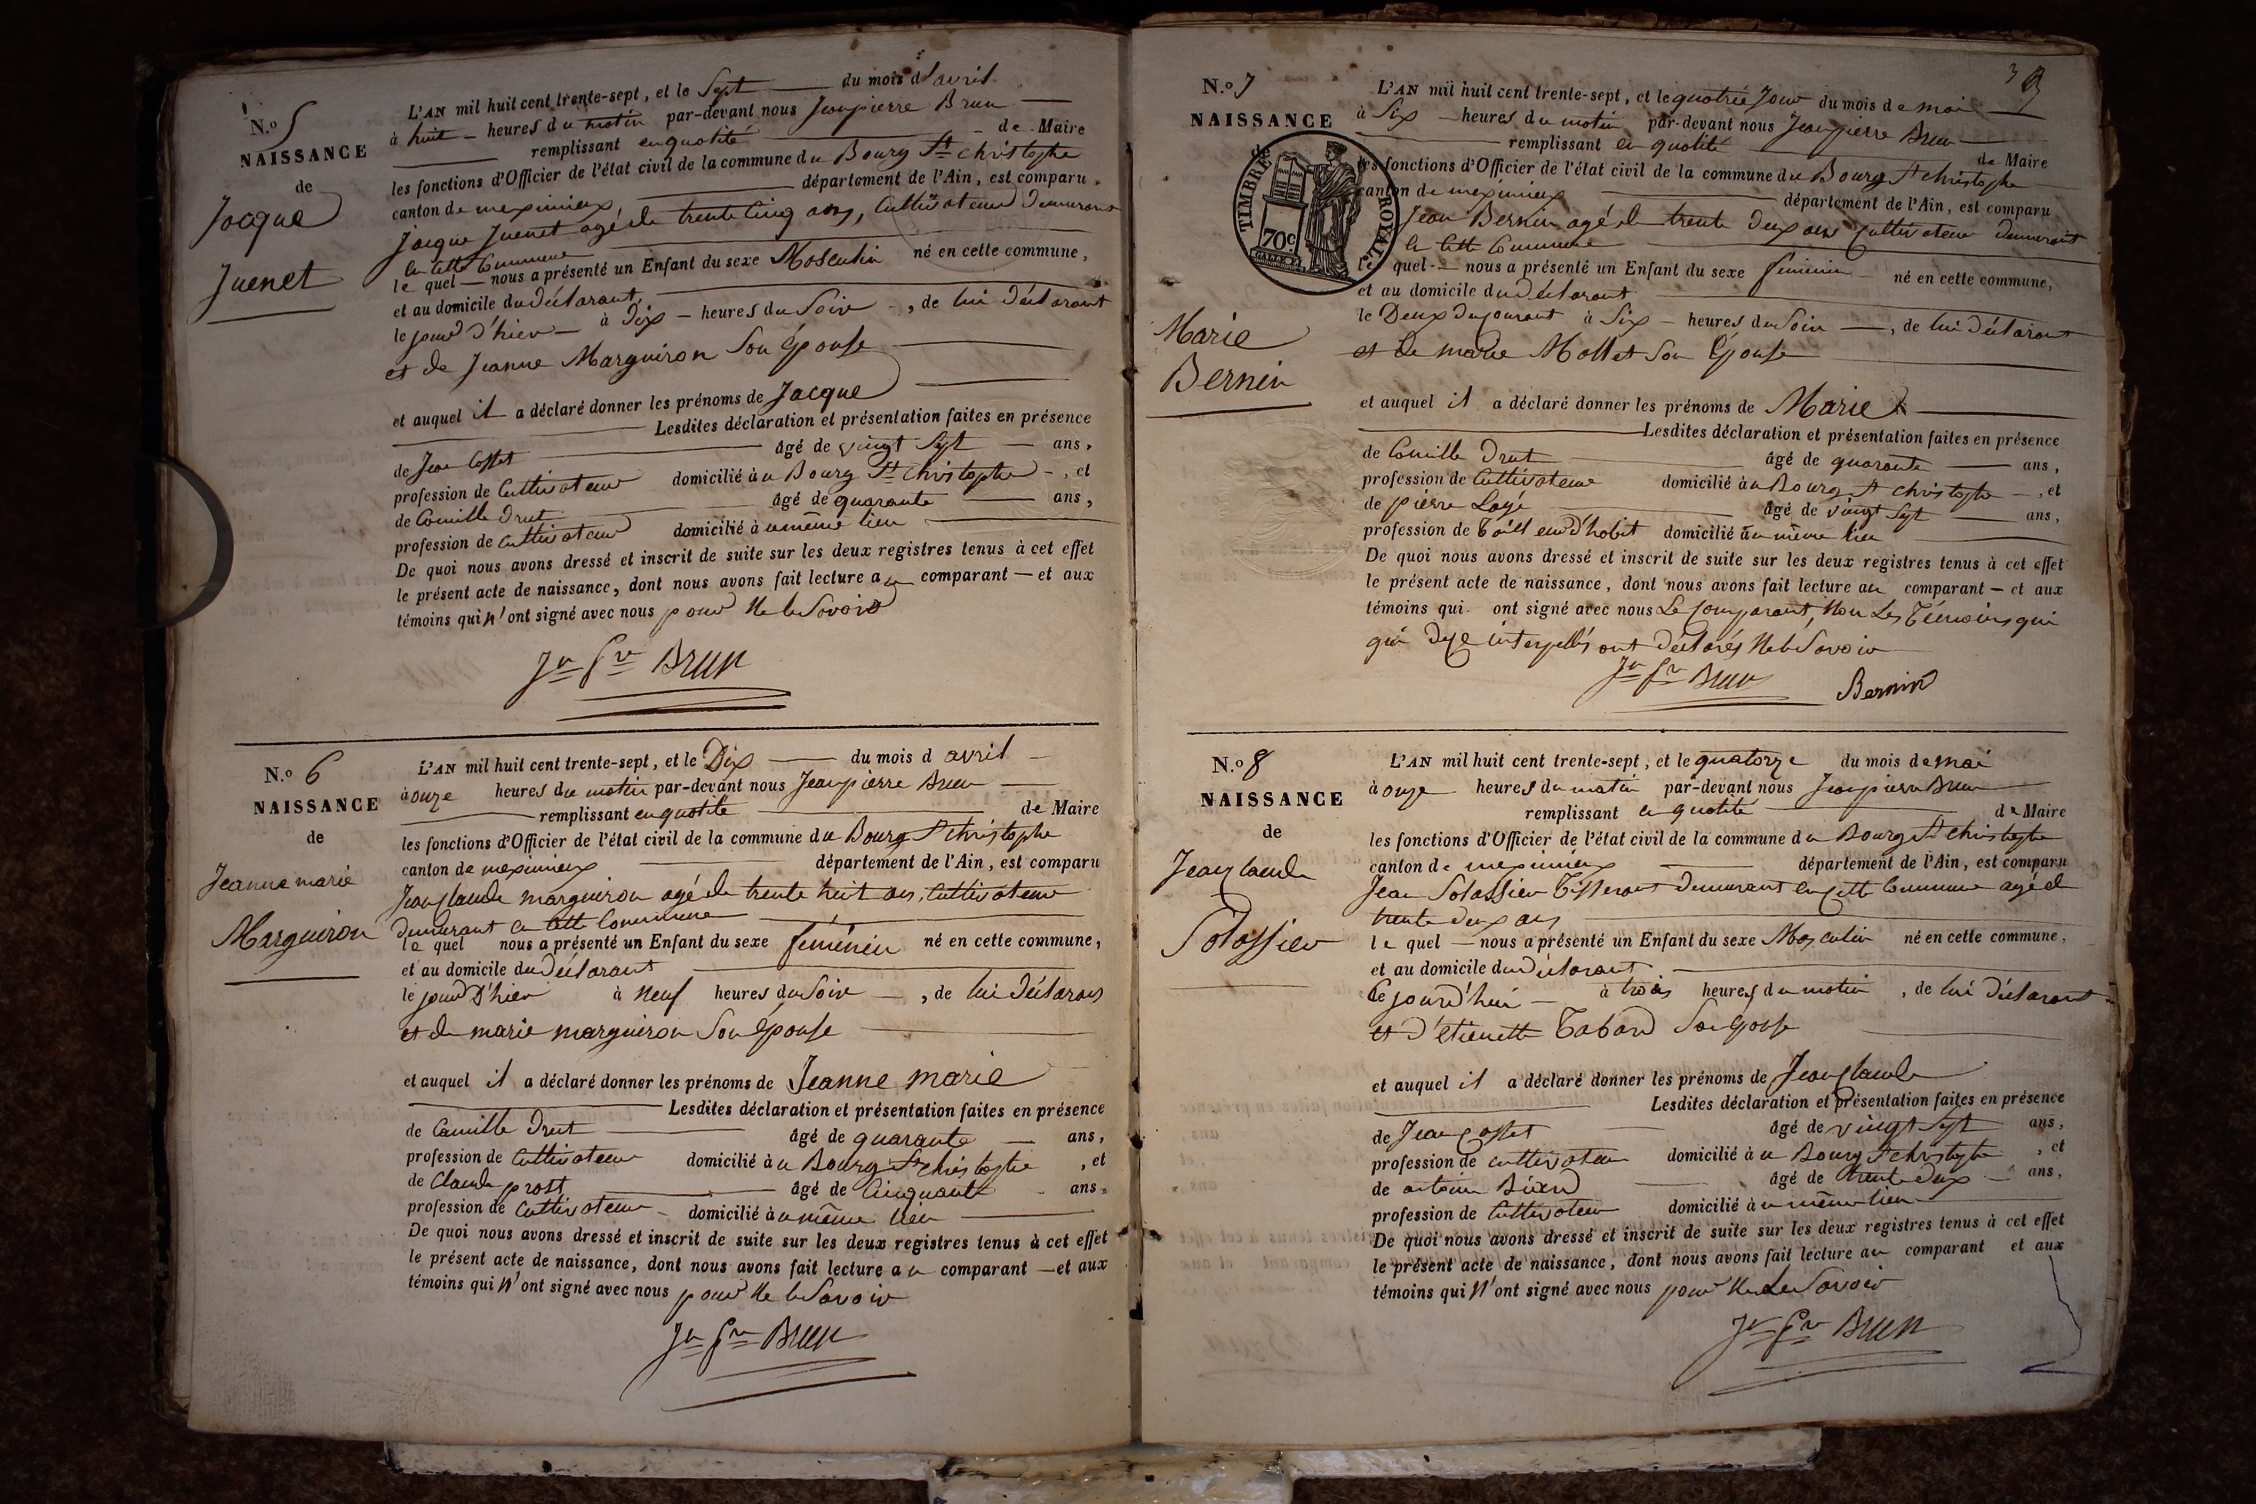 N.º 5
NAISSANCE
de
Jacque
Juenet
L'AN mil huit cent trente-sept, et le Sept du mois d'avril
à huit heures du matin par-devant nous Jeanpierre Brun
remplissant en qualité de Maire
les fonctions d'Officier de l'état civil de la commune du Bourg St christophe
canton de meximieux, département de l'Ain, est comparu
Jacque Juenet agé de trente Cinq ans, Cultivateur demeurant
en cette Commune
le quel nous a présenté un Enfant du sexe Masculin né en cette commune,
et au domicile du déclarant,
le jour d'hier à dix heures du Soir, de lui déclarant
et de Jeanne Marguiron Son épouse
et auquel il a déclaré donner les prénoms de Jacque
Lesdites déclaration et présentation faites en présence
de Jean Cosset âgé de vingt Sept ans,
profession de Cultivateur domicilié à u Bourg St christophe, et
de Camille Drut âgé de quarante ans,
profession de Cultivateur domicilié à u même lieu
De quoi nous avons dressé et inscrit de suite sur les deux registres tenus à cet effet
le présent acte de naissance, dont nous avons fait lecture au comparant et aux
témoins qui n'ont signé avec nous pour Ne le Savoir
Jn Pre Brun
N.º 6
NAISSANCE
de
Jeanne marie
Marguiron
L'AN mil huit cent trente-sept, et le Dix du mois d avril
à onze heures du matin par-devant nous Jeanpierre Brun
remplissant en qualité de Maire
les fonctions d'Officier de l'état civil de la commune du Bourg St christophe
canton de meximieux département de l'Ain, est comparu
Jean Claude marguiron agé de trente huit ans, Cultivateur
demeurant en cette Commune
le quel nous a présenté un Enfant du sexe féminin né en cette commune,
et au domicile du déclarant
le jour D'hier à Neuf heures du Soir, de lui déclarant
et de marie marguiron Son épouse
et auquel il a déclaré donner les prénoms de Jeanne marie
Lesdites déclaration et présentation faites en présence
de Camille Drut âgé de quarante ans,
profession de Cultivateur domicilié à u Bourg St christophe, et
de Claude prost âgé de Cinquante ans,
profession de Cultivateur domicilié à u même lieu
De quoi nous avons dressé et inscrit de suite sur les deux registres tenus à cet effet
le présent acte de naissance, dont nous avons fait lecture a u comparant et aux
témoins qui n'ont signé avec nous pour Ne le Savoir
Jn Pre Brun
N.º 7
NAISSANCE
de
TIMBRE ROYAL
70 c.
Marie
Bernin
3
L'AN mil huit cent trente-sept, et le quatrie Jour du mois de mai
à Six heures du matin par-devant nous Jeanpierre Brun
remplissant en qualité de Maire
les fonctions d'Officier de l'état civil de la commune du Bourg St christophe
canton de meximieux département de l'Ain, est comparu
Jean Bernin agé de trente deux ans Cultivateur demeurant
en cette Commune
le quel nous a présenté un Enfant du sexe féminin né en cette commune,
et au domicile du déclarant
le Deux du courant à Six heures du Soir, de lui déclarant
et de marie Mollet Son Epouse
et auquel il a déclaré donner les prénoms de Marie
Lesdites déclaration et présentation faites en présence
de Camille Drut âgé de quarante ans,
profession de Cultivateur domicilié à u Bourg St christophe, et
de pierre Layé âgé de vingt Sept ans,
profession de Tailleur d'habit domicilié à u même lieu
De quoi nous avons dressé et inscrit de suite sur les deux registres tenus à cet effet
le présent acte de naissance, dont nous avons fait lecture au comparant et aux
témoins qui ont signé avec nous Le Comparant, Non Les Témoins qui
qui de ce interpellés ont déclarés Ne le Savoir
Jn Pre Brun Bernin
N.º 8
NAISSANCE
de
Jean Claude
Solassier
L'AN mil huit cent trente-sept, et le quatorze du mois de mai
à onze heures du matin par-devant nous Jeanpierre Brun
remplissant en qualité de Maire
les fonctions d'Officier de l'état civil de la commune du Bourg St christophe
canton de meximieux département de l'Ain, est comparu
Jean Solassier Tisserant demeurant en cette Commune agé de
trente deux ans
le quel nous a présenté un Enfant du sexe Masculin né en cette commune,
et au domicile du déclarant
le jourd'hui à trois heures du matin, de lui déclarant
et d'etienette Tabard Son épouse
et auquel il a déclaré donner les prénoms de Jean Claude
Lesdites déclaration et présentation faites en présence
de Jean Cosset âgé de vingt Sept ans,
profession de Cultivateur domicilié à u Bourg St christophe, et
de antoine âgé de trente deux ans,
profession de Cultivateur domicilié à u même lieu
De quoi nous avons dressé et inscrit de suite sur les deux registres tenus à cet effet
le présent acte de naissance, dont nous avons fait lecture au comparant et aux
témoins qui n'ont signé avec nous pour Ne Le Savoir
Jn Pre Brun